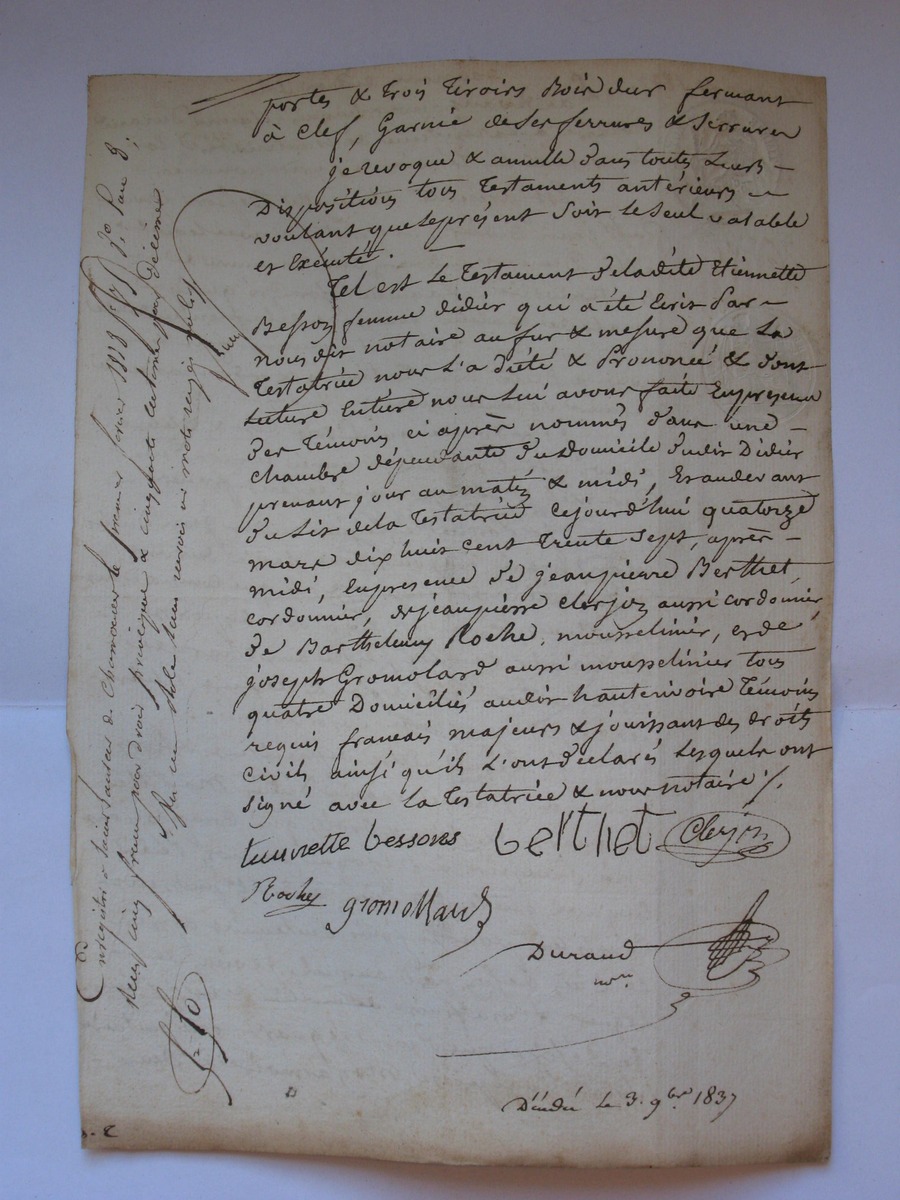 portes & trois tiroirs Bois dur fermant
à clef, Garnie de ses ferrures & serrures
je revoque & annulle dans toutes Leurs -
Dispositions tous Testaments antérieurs -
voulant que le présent soit le seul valable
et Exécuté. -
Tel est le Testament de ladite Etiennette
Besson femme didier qui a été Ecrit Par -
nous dit notaire au fur & mesure que La
Testatrice nous l'a dicté & Prononcé & dont
Lecture Entière nous Lui avons faite En presence
des Témoins ci après nommés dans une -
chambre dépendante du domicile dudit Didier
prenant jour au matin & midi, Et au devant
du Lit de la Testatrice Cejourd'hui quatorze
mars dix huit cent trente sept, après -
midi, En presence de jean pierre Berthet,
cordonnier, de jean pierre Clerjon aussi cordonnier,
de Barthelemy Roche, mousselinier, et de
joseph Gromolard aussi mousselinier tous
quatre Domiciliés audit hauterivoire Témoins
requis francais majeurs & jouissant des droits
civils ainsi qu'ils l'ont déclarés Lesquels ont
signé avec la Testatrice & nous notaire ./.
Besson Berthet Clerjon
Roche gromollard
Durand
nre
Décédée le 3. 9bre 1837
Enregistré à Saint Laurent de Chamousset le premier fevrier 1838
Reçu cinq francs pour droit principal & cinquante centimes pour décime